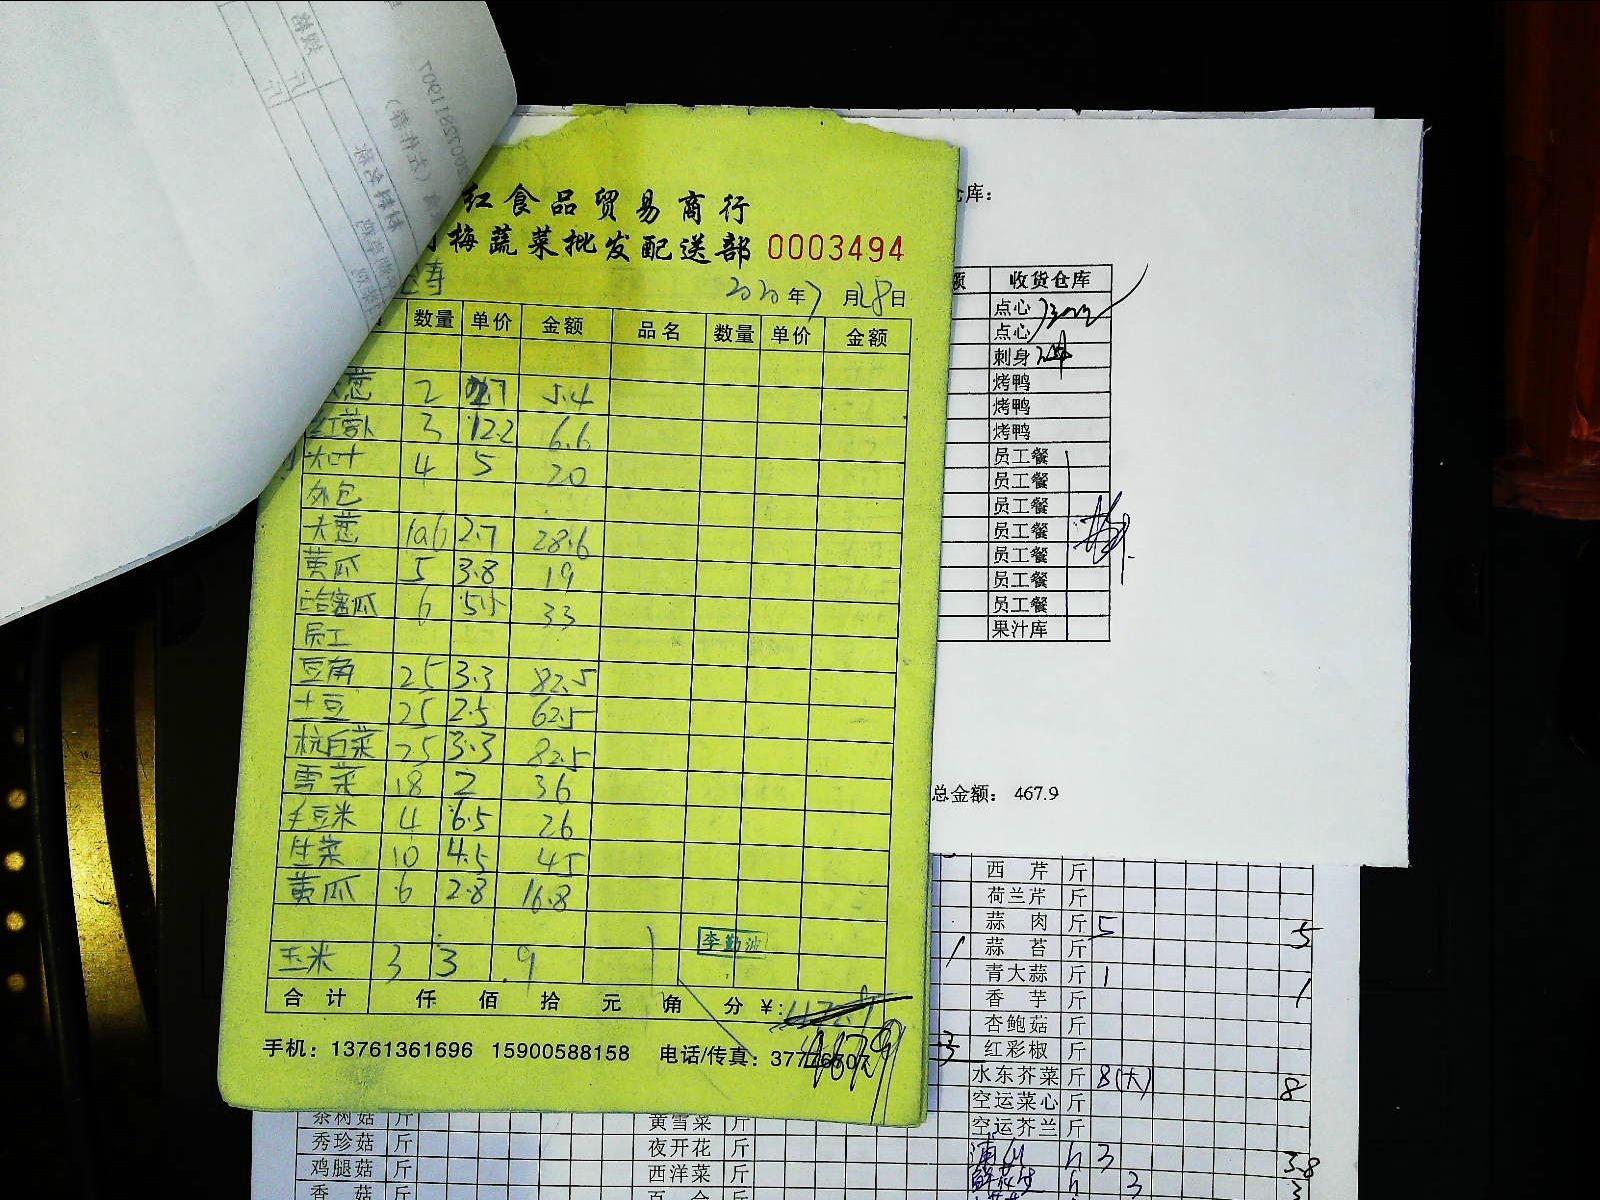 红食品贸易商行
梅蔬菜批发配送部 0003494
2020年7月28日
数量 单价 金额 品名 数量 单价 金额
葱 2 2.7 5.4
红萝卜 3 2.2 6.6
大叶 4 5 20
外包
大葱 10.6 2.7 28.6
黄瓜 5 3.8 19
哈密瓜 6 5.5 33
员工
豆角 25 3.3 82.5
土豆 25 2.5 62.5
杭白菜 25 3.3 82.5
雪菜 18 2 36
毛豆米 4 6.5 26
生菜 10 4.5 45
黄瓜 6 2.8 16.8
李勤波
玉米 3 3 9
合计 仟 佰 拾 元 角 分 ¥:
467.9
手机：13761361696 15900588158 电话/传真：37746807
仓库：
额 收货仓库
点心
点心
刺身
烤鸭
烤鸭
烤鸭
员工餐
员工餐
员工餐
员工餐
员工餐
员工餐
员工餐
果汁库
总金额： 467.9
西芹 斤
荷兰芹 斤
蒜肉 斤 5 5
蒜苔 斤
青大蒜 斤 1 1
香芋 斤
杏鲍菇 斤
3 红彩椒 斤
水东芥菜 斤 8(大) 8
空运菜心 斤
茶树菇 斤 黄雪菜 斤 空运芥兰 斤
秀珍菇 斤 夜开花 斤 3 3.8
鸡腿菇 斤 西洋菜 斤 3 3
香菇 斤 百合 斤